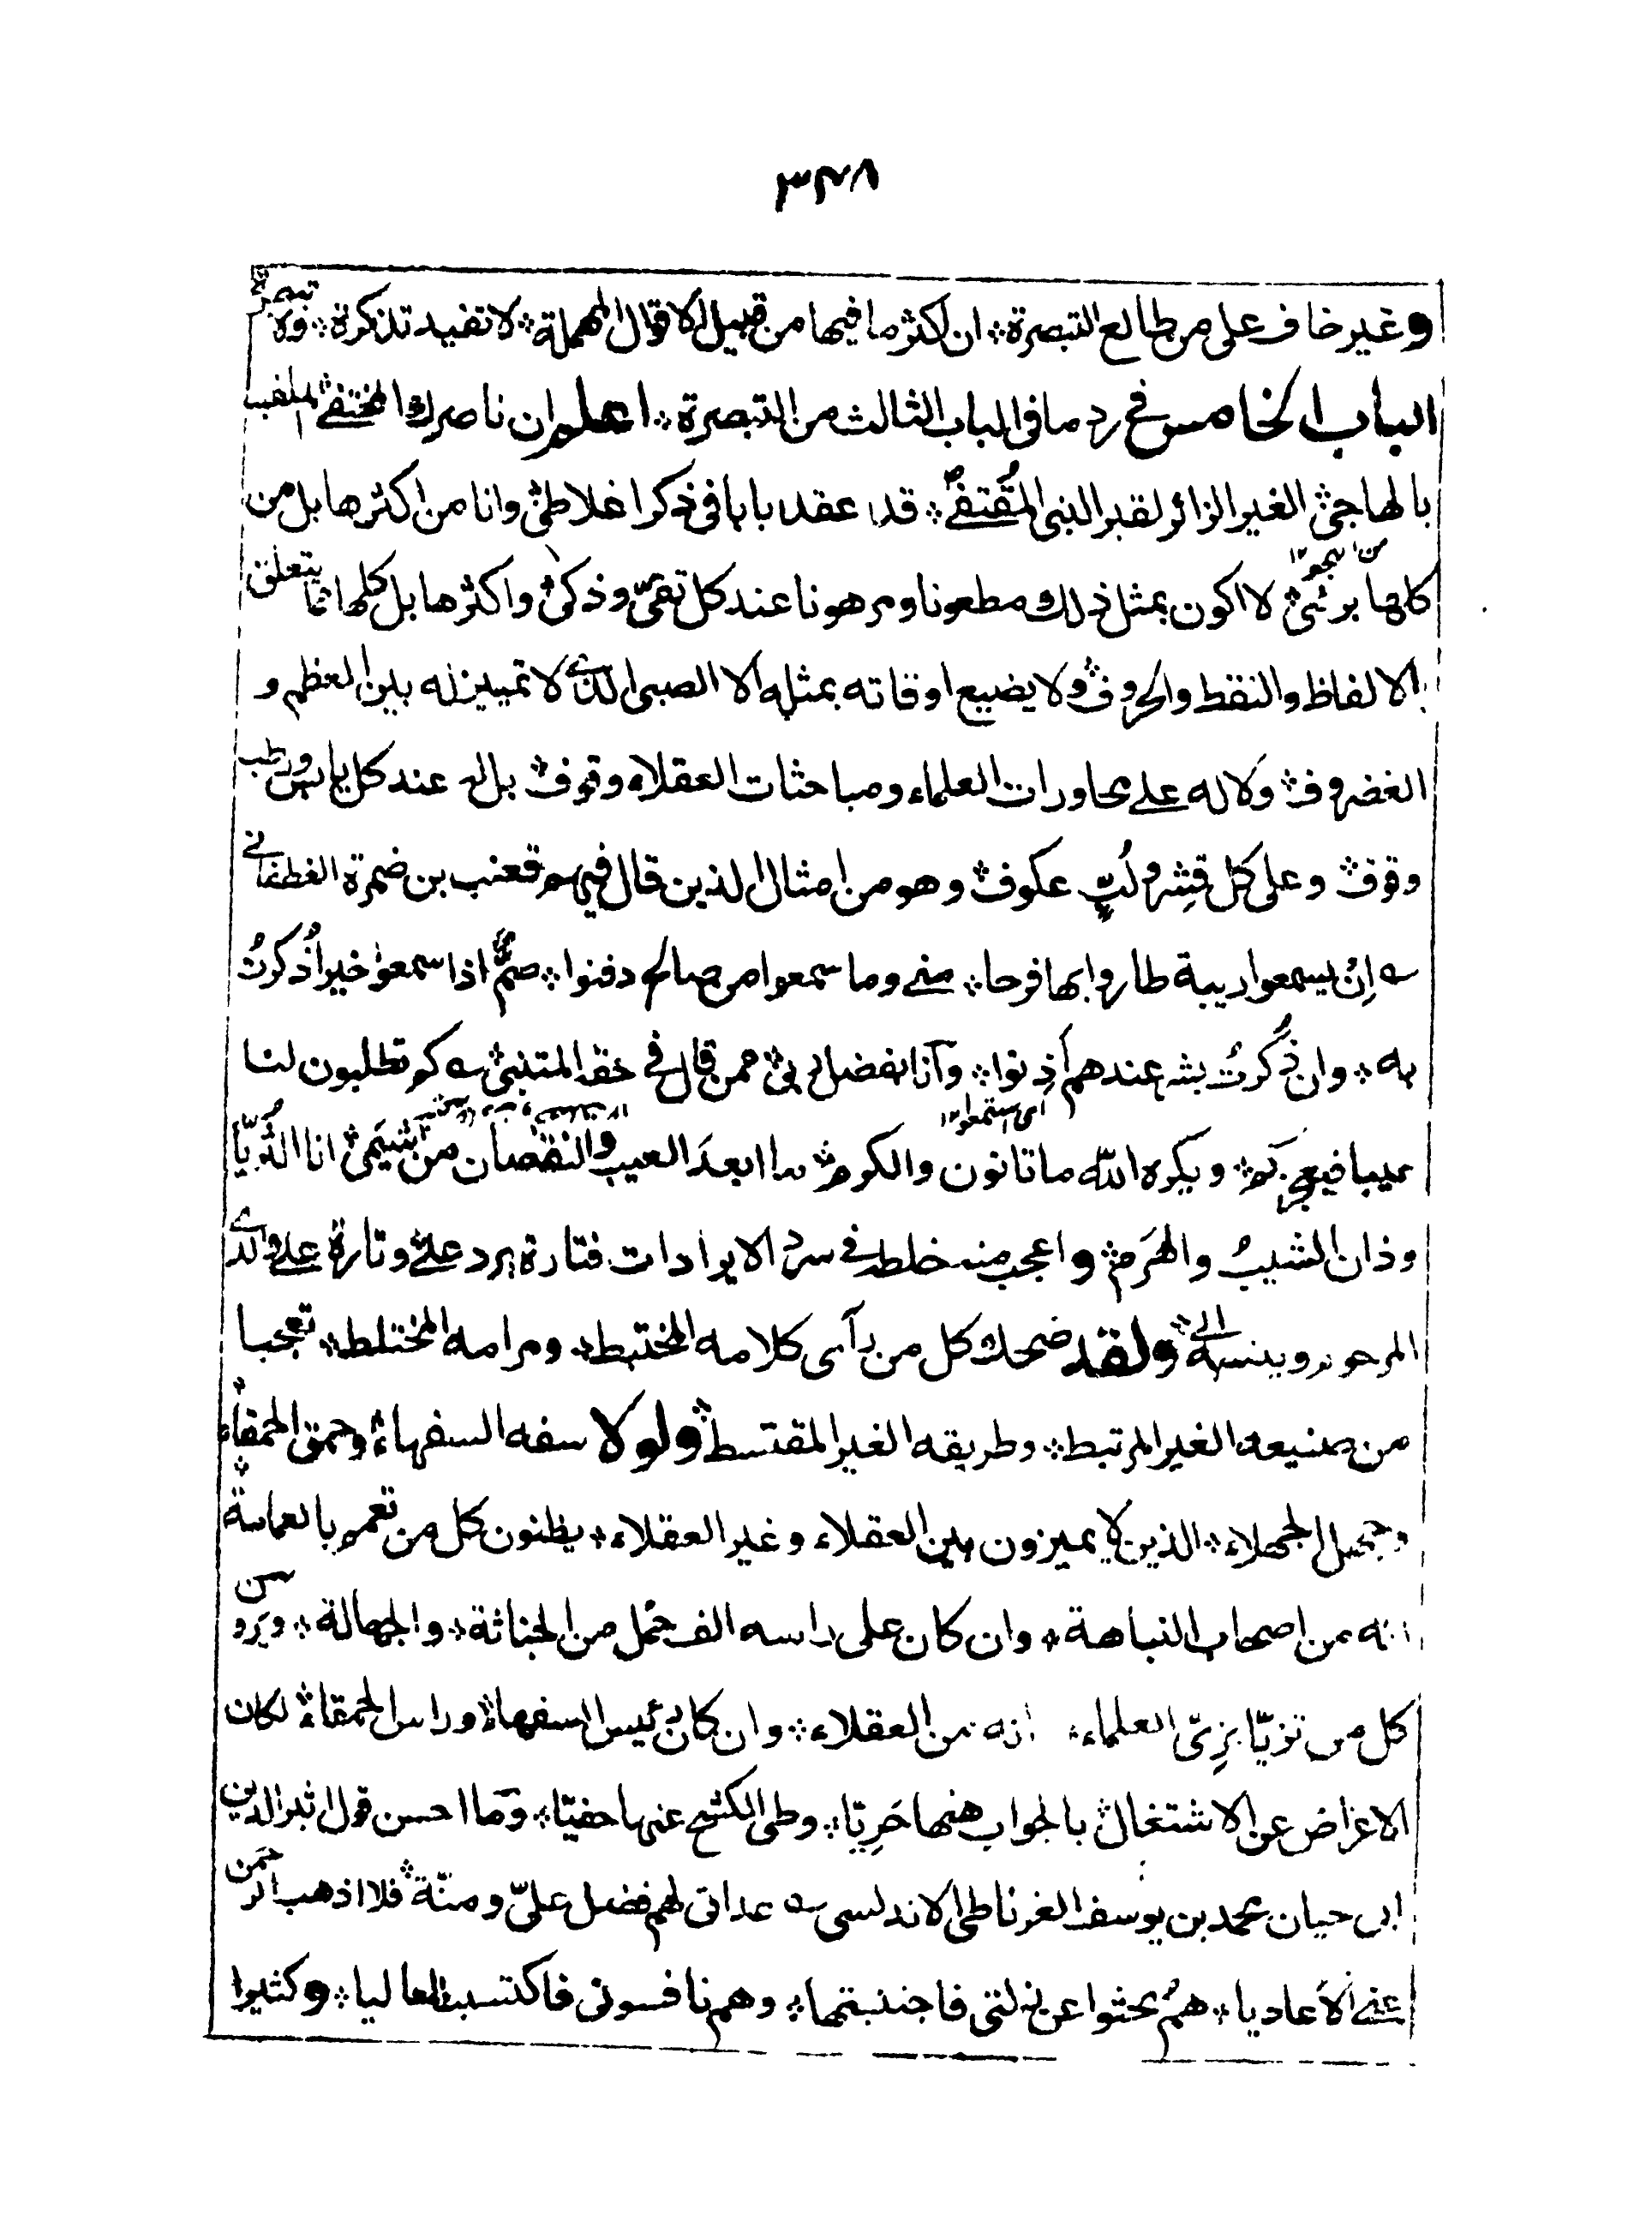 ٣٤٨
وغير خاف على من طالع التبصرة ان اكثر ما فيها من قبيل الاقوال المهملة لا تفيد تذكرة ولا تبصرة
الباب الخامس في رد ما في الباب الثالث من التبصرة اعلم ان ناصرك المختفى الملقب
بالهاجى الغير الزائر لقبر النبى المقتفى قد عقد بابا فى ذكر اغلاطى وانا من اكثرها بل من
كلها برئ لا اكون بمثل ذلك مطعونا ومرهونا عند كل تقى وذكى واكثرها بل كلها مما يتعلق
بالالفاظ والنقط والحروف ولا يضيع اوقاته بمثله الا الصبى الذى لا تمييز له بين العظم و
الغضروف ولا له على محاورات العلماء ومباحثات العقلاء وقوف بل له عند كل يابس ورطب
وقوف وعلى كل قشر ولُبّ عكوف وهو من امثال الذين قال فيهم قعنب بن ضمرة الغطفانى
اِنْ يسمعوا ريبة طاروا بها فرحا منى وما سمعوا من صالح دفنوا صمٌّ اذا سمعوا خيرا ذُكرتُ
به وان ذُكرتُ بشر عندهم أَذِنوا وانا بفضل ربى ممن قال فى حقه المتنبى كم تطلبون لنا
اى استمعوا
عيبا فيعجزكم ويكره الله ما تاتون والكرم ما ابعدَ العيب والنقصان من شِيَمى انا الثُّريّا
وذان الشيبُ والهَرَم واعجب منه خلطه فى سرد الايرادات فتارة يرد علىّ وتارة على والدى
المرحوم وينسبه الى ولقد ضحك كل من رآى كلامه المختبط ومرامه المختلط تعجبا
من صنيعه الغير المرتبط وطريقه الغير المقتسط ولولا سفه السفهاء وحمق الحمقاء
وجهل الجهلاء الذين لا يميزون بين العقلاء وغير العقلاء يظنون كل من تعمم بالعمامة
انه من اصحاب النباهة وان كان على راسه الف حمْل من الخباثة والجهالة ويرون
كل من تزيّا بزىّ العلماء انه من العقلاء وان كان رئيس السفهاء وراس الحمقاء لكان
الاعراض عن الاشتغال بالجواب عنها حَرِيّا وطى الكشح عنها حفيّا وما احسن قول اثير الدين
ابى حيان محمد بن يوسف الغرناطى الاندلسى عداتى لهم فضل علىّ ومنّة فلا اذهب الرحمن
عنى الاَعاديا همُ بحثوا عن زلتى فاجتنبتها وهم نافسونى فاكتسبت المعاليا وكثيرا